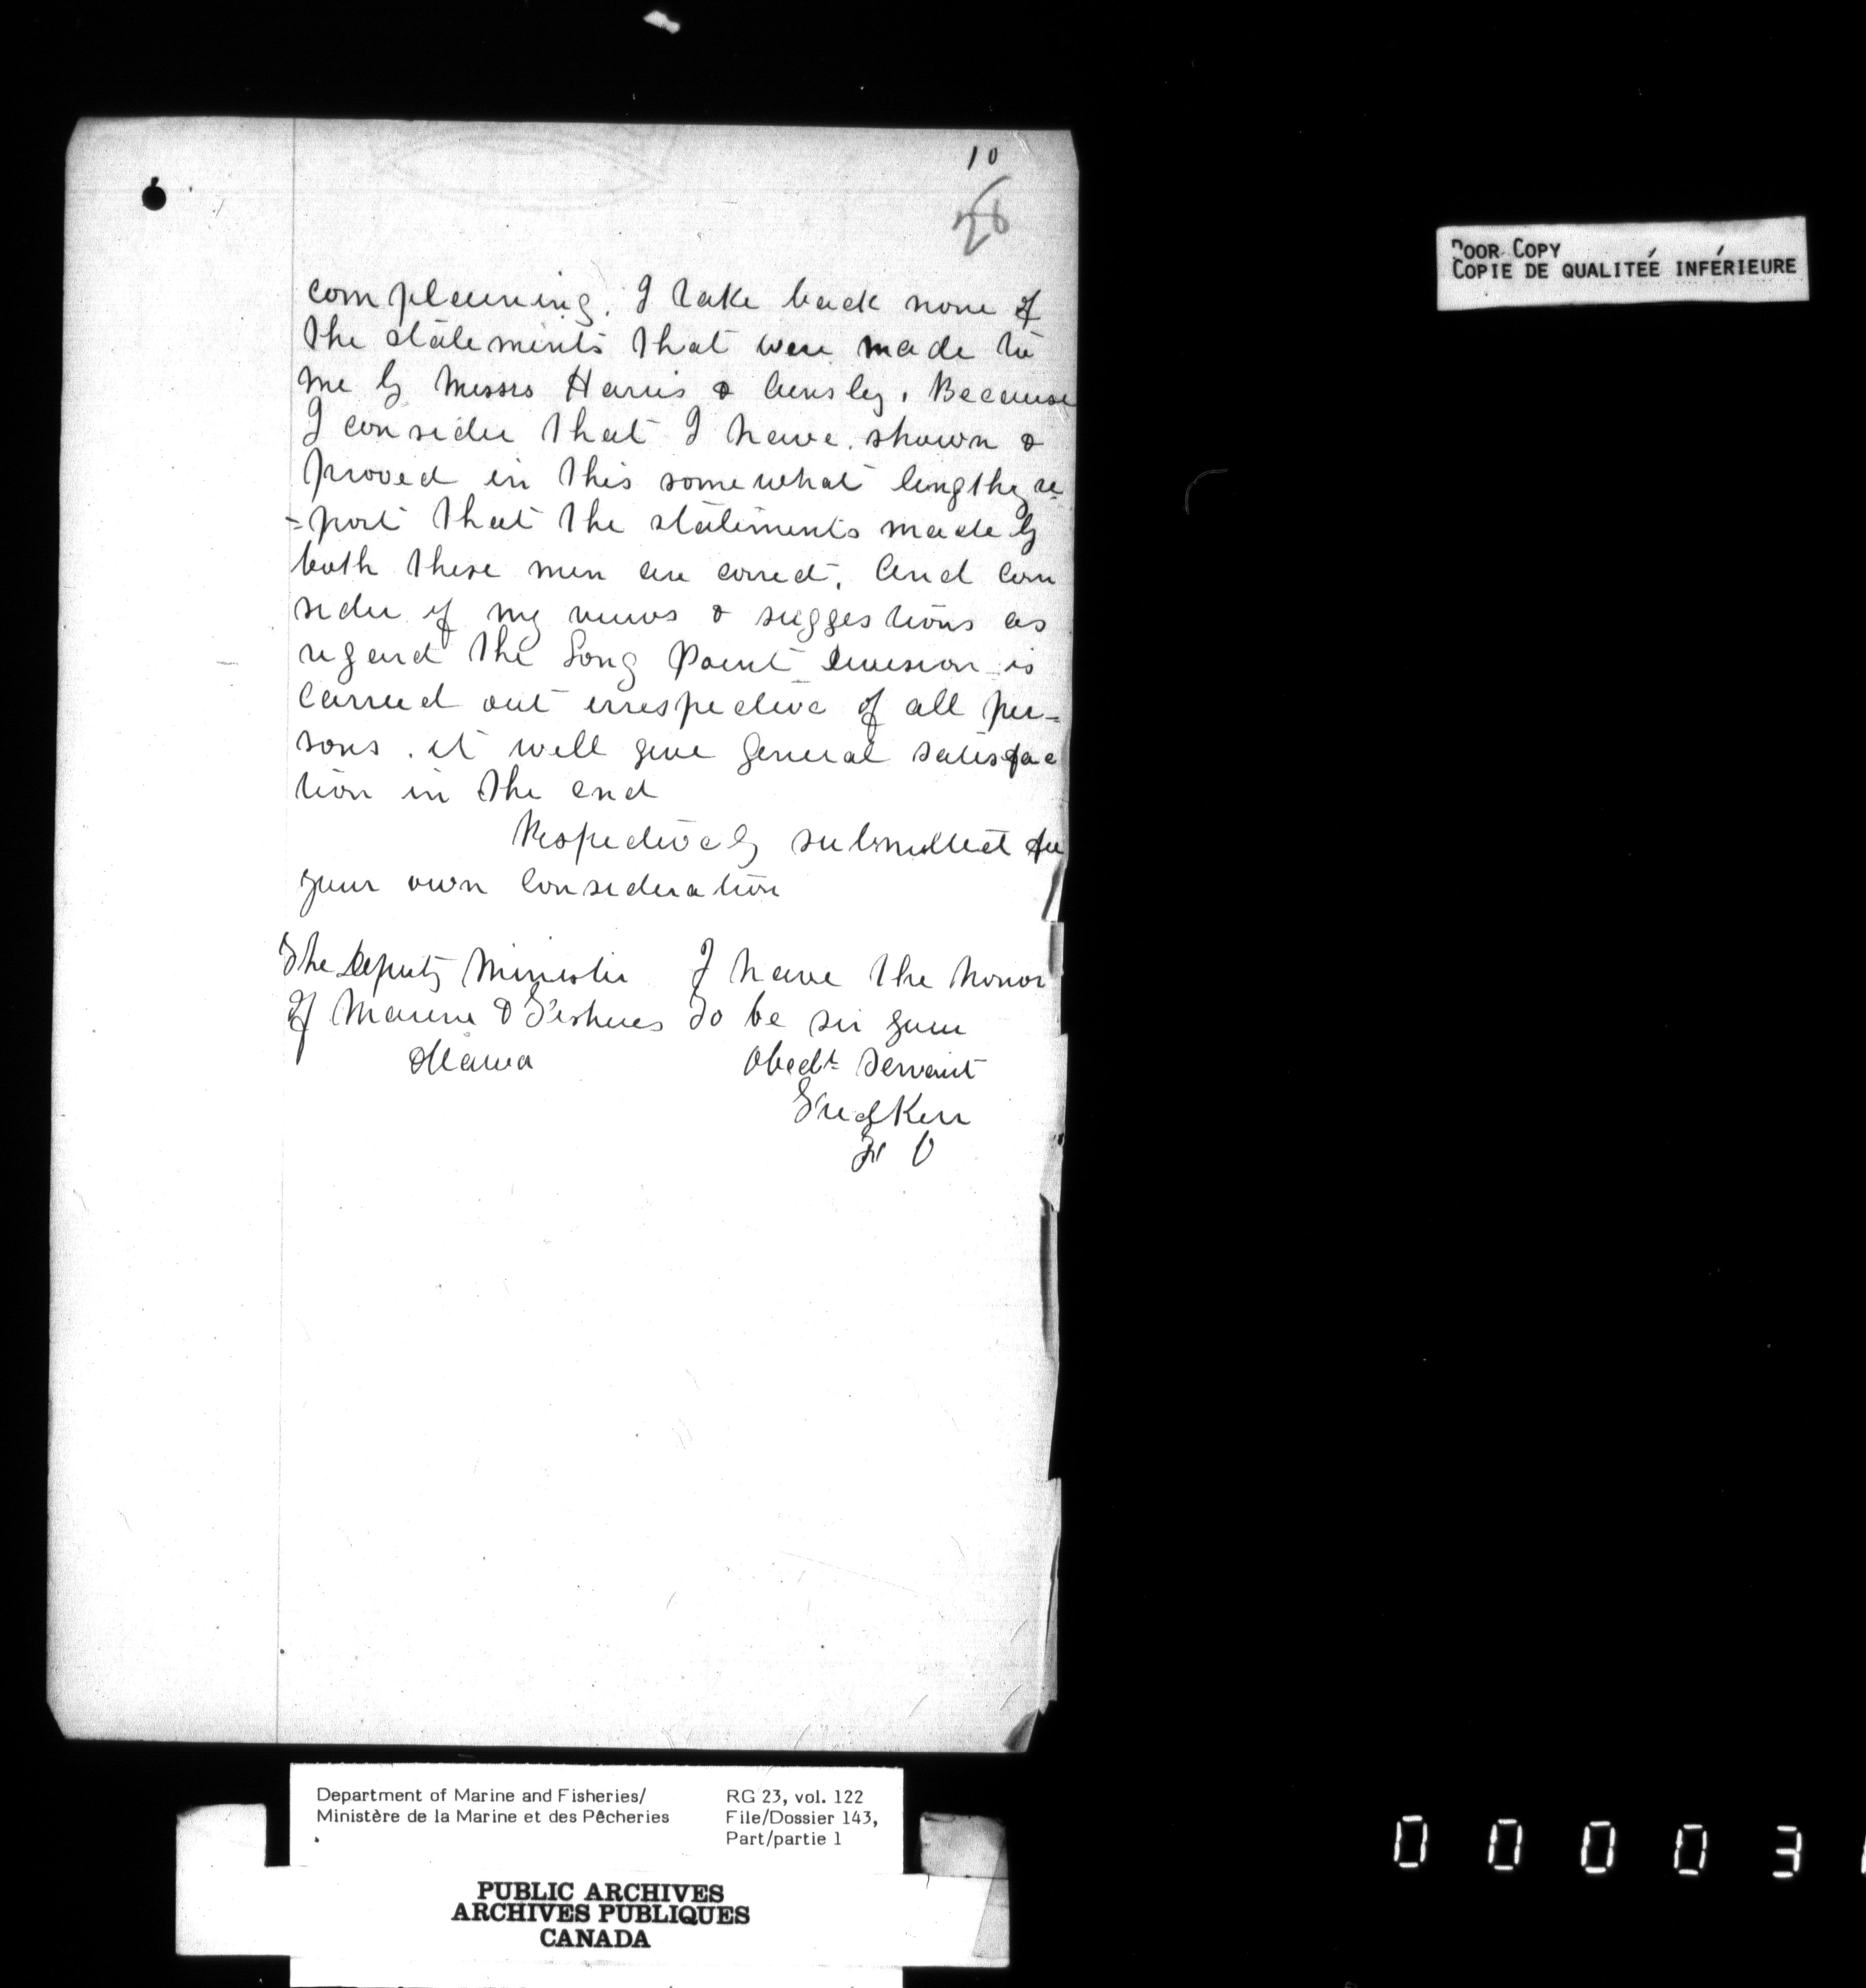 10
26
complaining. I take back none of
the statements that were made to
me by Messrs Harris & Ainsley. Because
I consider that I have shown &
proved in this somewhat lengthy re
=port that the statements made by
both these men are correct. And con
sider if my views & suggestions as
regard the Long Point Division is
carried out irrespective of all per-
sons. it will give general satisfac
tion in the end
Respectively submitted for
your own consideration
The Deputy Minister I have the honor
Of Marine & Fisheries To be sir your
Ottawa Obedt Servant
Fred Kerr
F O
POOR COPY
COPIE DE QUALITEÉ INFÉRIEURE
Department of Marine and Fisheries/
Ministère de la Marine et des Pêcheries
RG 23, vol. 122
File/Dossier 143,
Part/partie 1
PUBLIC ARCHIVES
ARCHIVES PUBLIQUES
CANADA
0 0 0 0 3